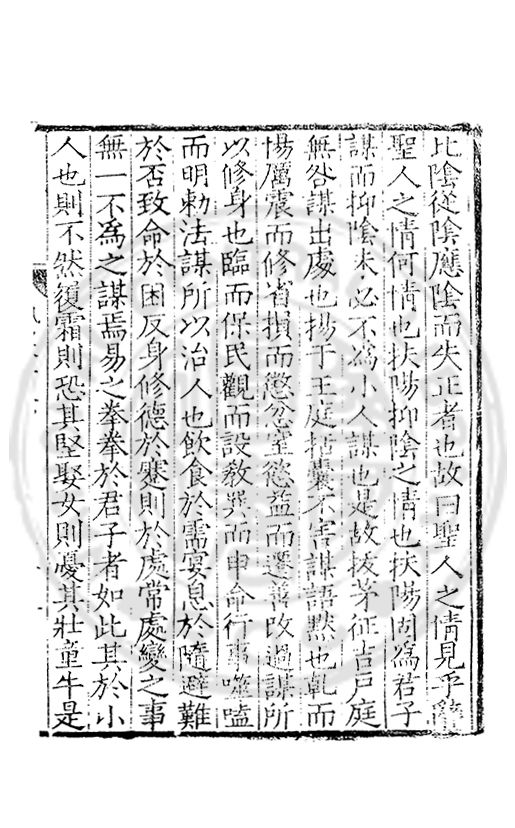 比陰從陰應陰而失正者也故曰聖人之情見乎辭
聖人之情何情也扶陽抑陰之情也扶陽固為君子
謀而抑陰未必不為小人謀也是故拔茅征吉戶庭
無咎謀出處也揚于王庭括囊不害謀語默也乹而
惕厲震而修省損而懲忿窒慾益而遷善改過謀所
以修身也臨而保民觀而設敎巽而申命行事噬嗑
而明勅法謀所以治人也飲食於需宴息於隨避難
於否致命於困反身修德於蹇則於處常處變之事
無一不為之謀焉易之拳拳於君子者如此其於小
人也則不然履霜則恐其堅娶女則憂其壯童牛是